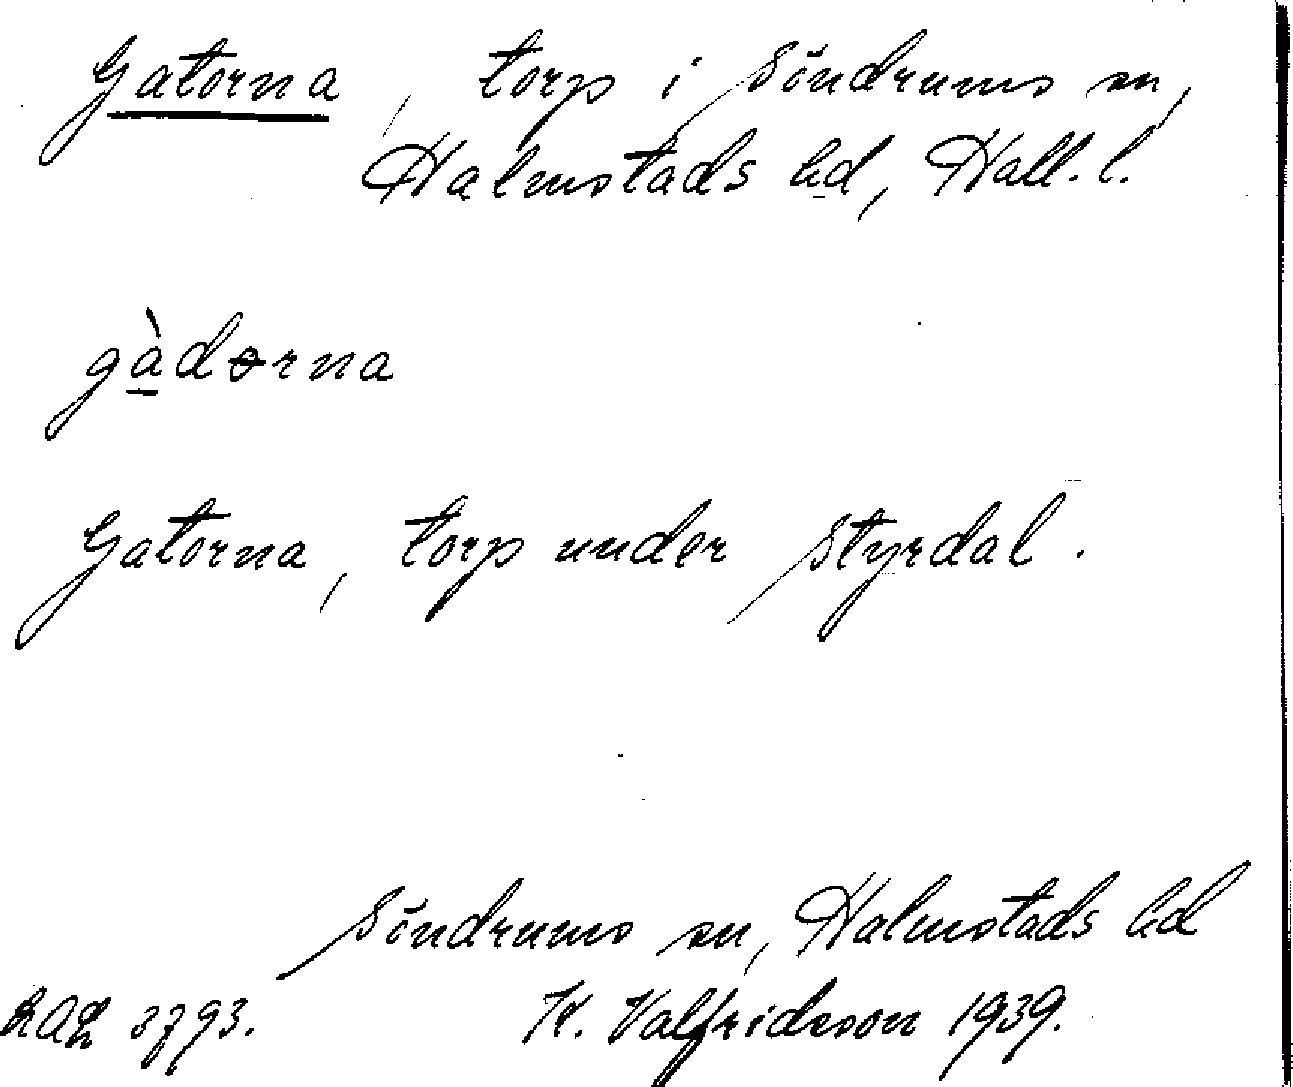 Gatorna, torp i Söndrums sn,
Halmstads hd, Hall. l.
gàdorna
Gatorna, torp under Styrdal.
Söndrums sn, Halmstads hd
3793. K. Valfridsson 1939.